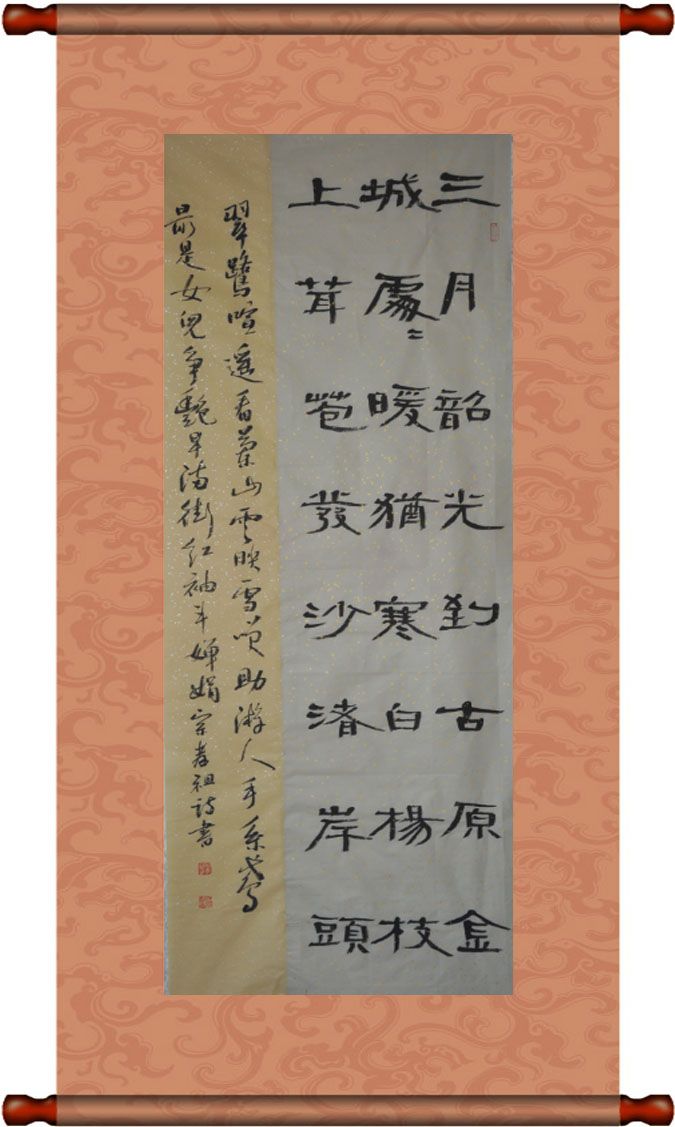 三月韶光到古原金
城處〻暖猶寒白楊枝
上茸苞發沙渚岸頭
翠鷺喧遥看蘭山雲映雪笑助游人手系鸢
最是女兒争艷早满街红袖斗婵娟宗孝祖詩書